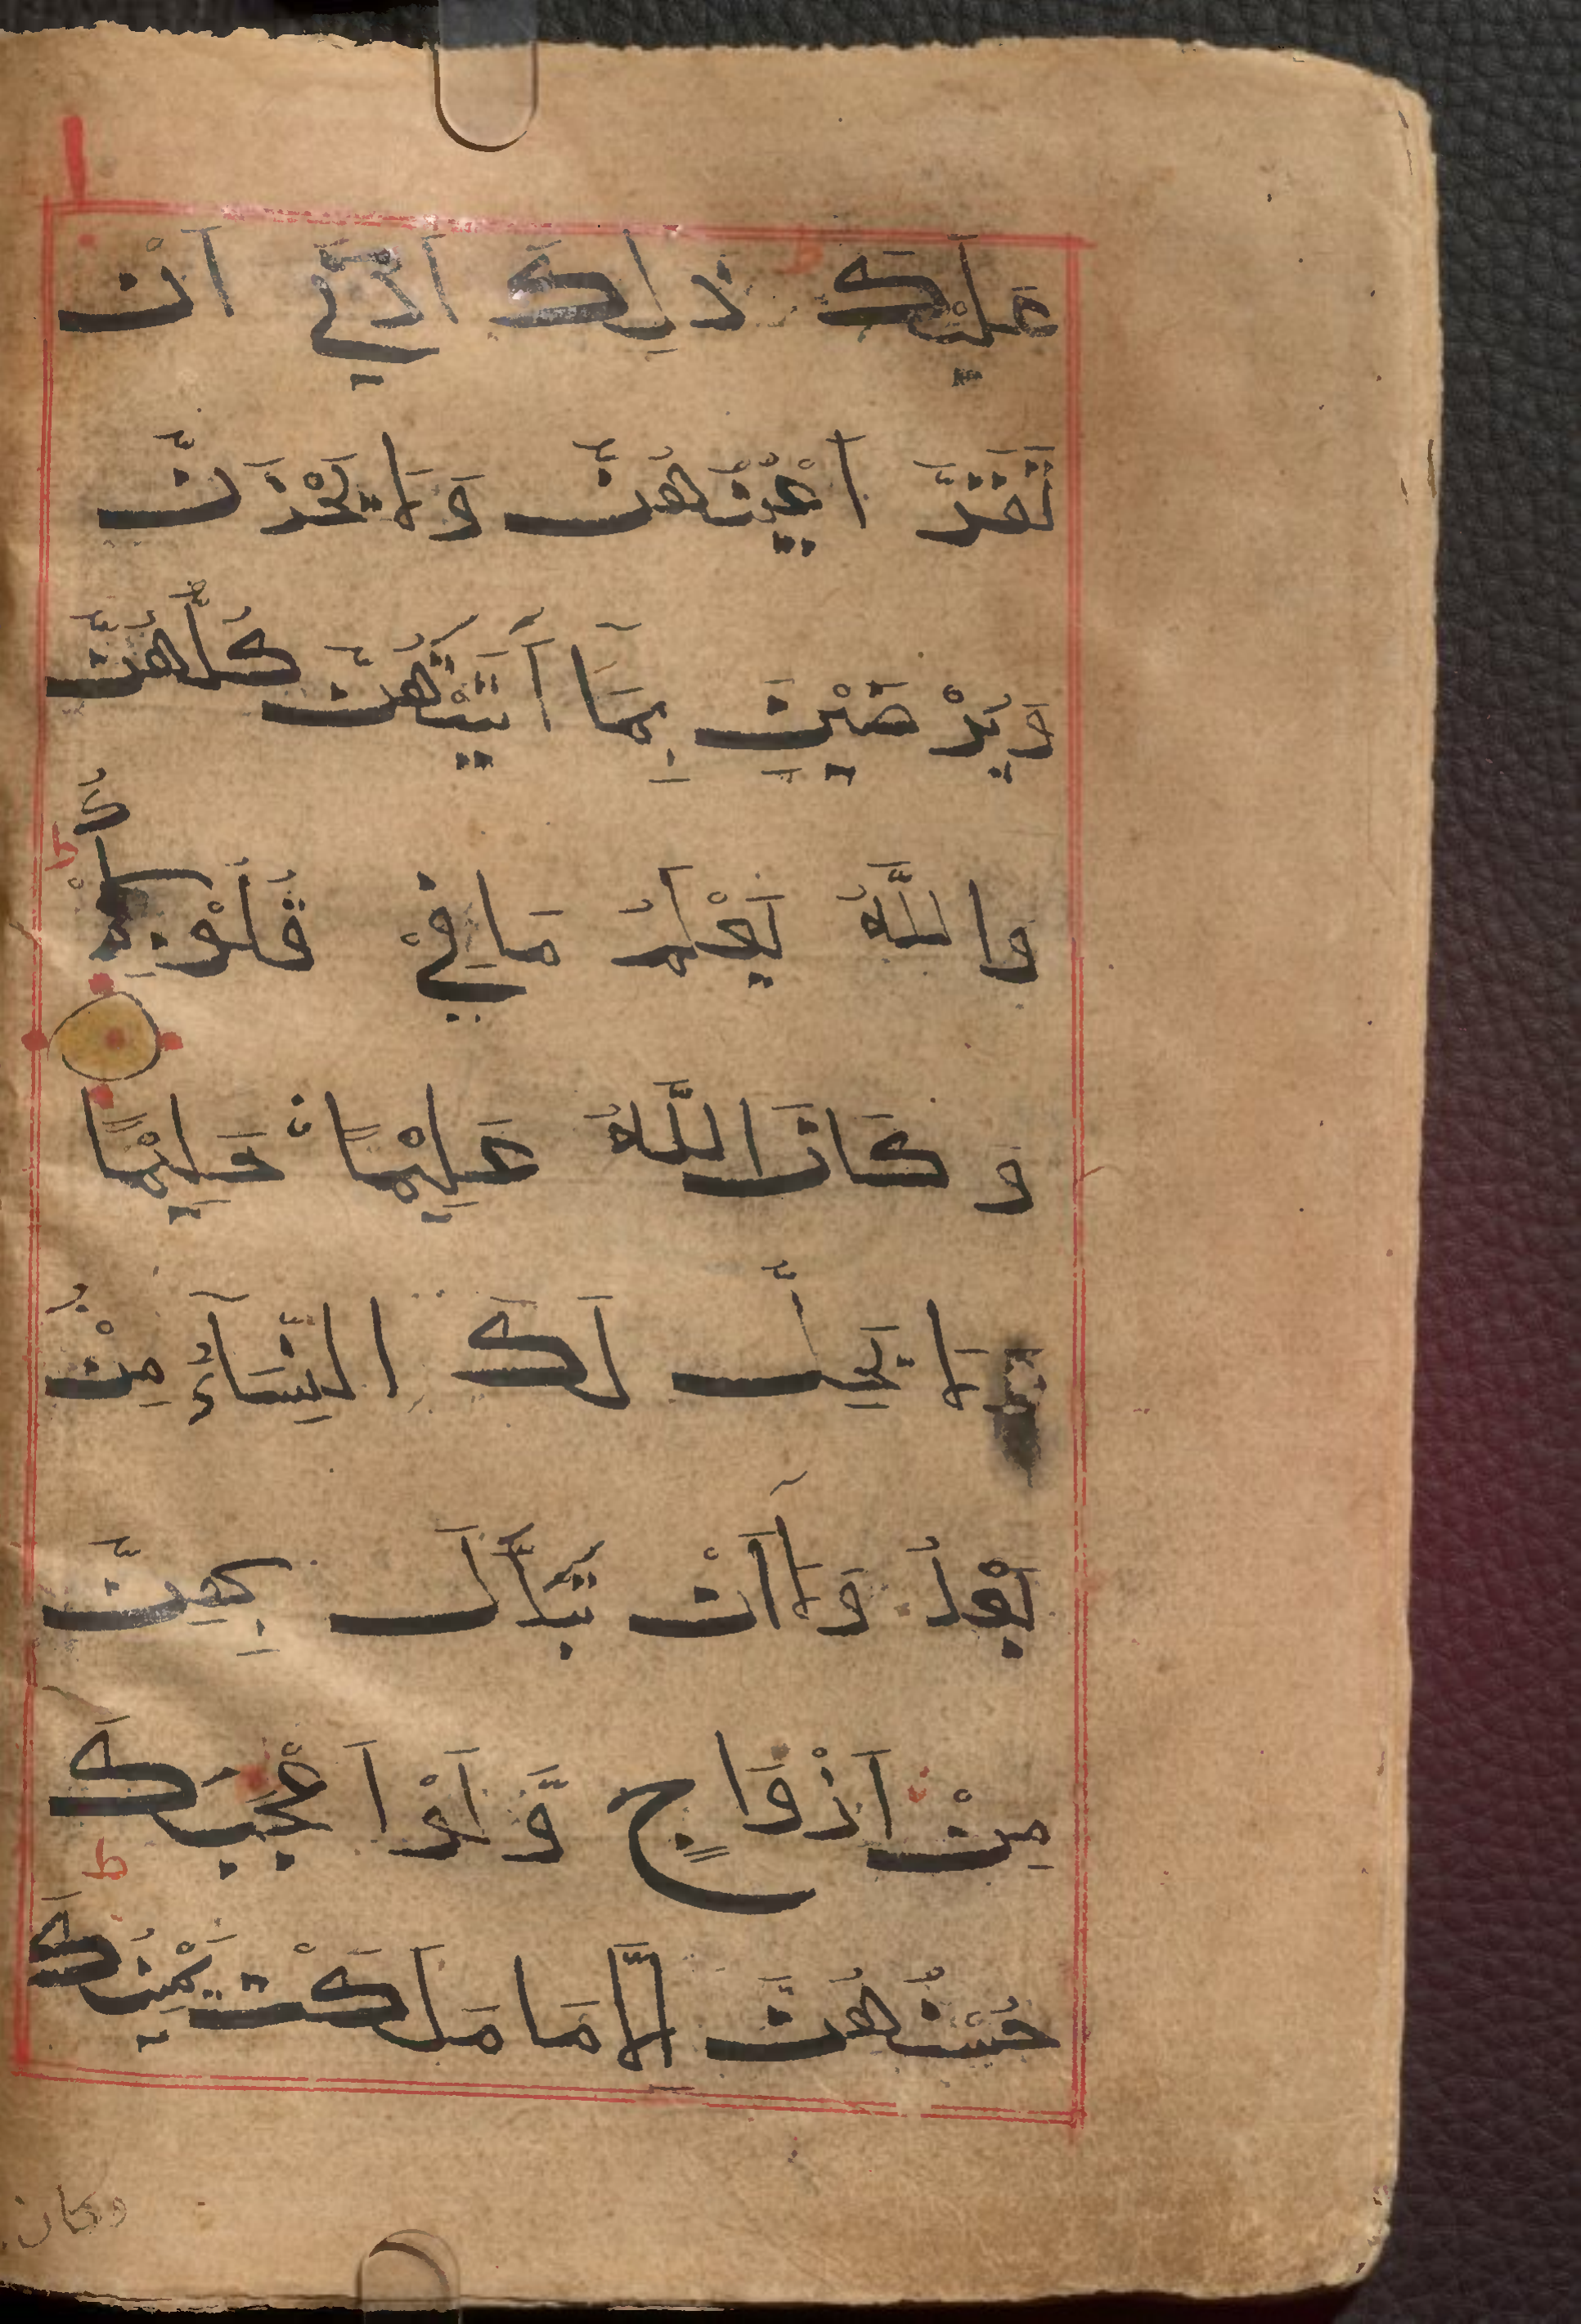 عَلَيْكَ ط ذٰلِكَ اَدْنٰٓي اَنْ
تَقَرَّ اَعْيُنُهُنَّ وَلَا يَحْزَنَّ
وَيَرْضَيْنَ بِمَآ اٰتَيْتَهُنَّ كُلُّهُنَّ
وَاللّٰهُ يَعْلَمُ مَا فِيْ قُلُوْبِكُمْ ط
وَكَانَ اللّٰهُ عَلِيْمًا حَلِيْمًا
لَا يَحِلُّ لَكَ النِّسَآءُ مِنْۢ
بَعْدُ وَلَآ اَنْ تَبَدَّلَ بِهِنَّ
مِنْ اَزْوَاجٍ وَّلَوْ اَعْجَبَكَ
حُسْنُهُنَّ اِلَّا مَا مَلَكَتْ يَمِيْنُكَ ط
وكان